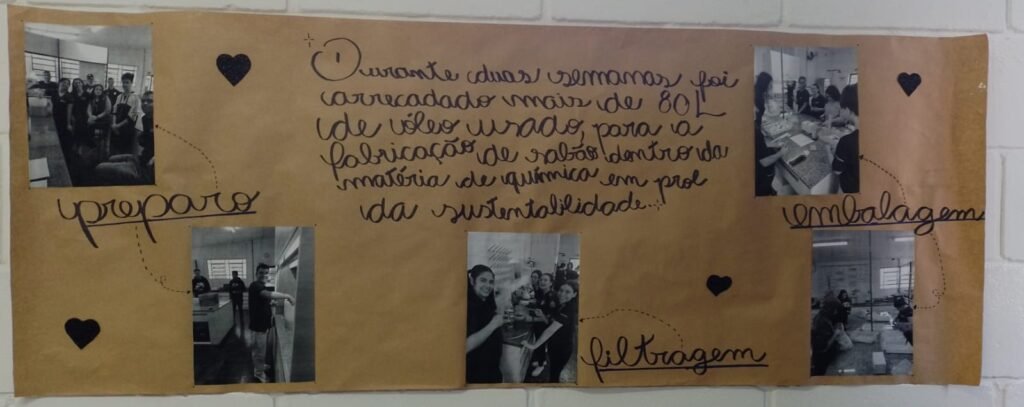 Durante duas semanas foi
arrecadado mais de 80L
de óleo usado, para a
fabricação de sabão dentro da
matéria de química em prol
da sustentabilidade...
preparo
embalagem
filtragem